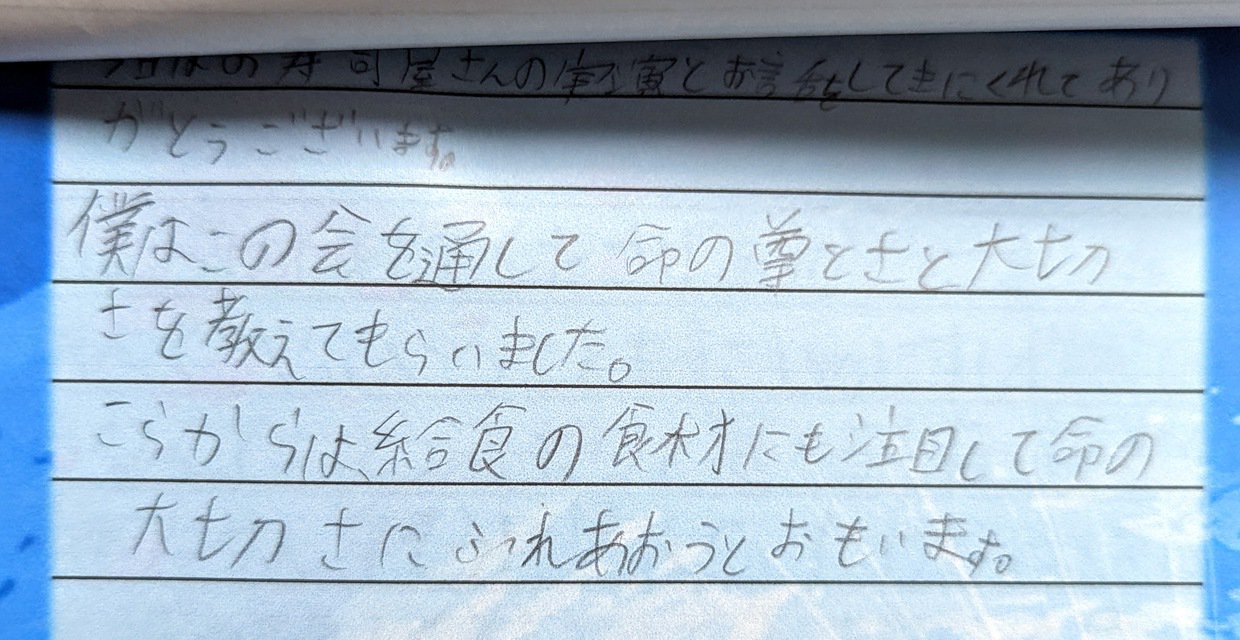 寿司屋さんの実演とお話をしてきにくれてあり
がとうございます。
僕はこの会を通して命の尊とさと大切
さを教えてもらいました。
こらからは給食の食材にも注目して命の
大切さにふれあおうとおもいます。